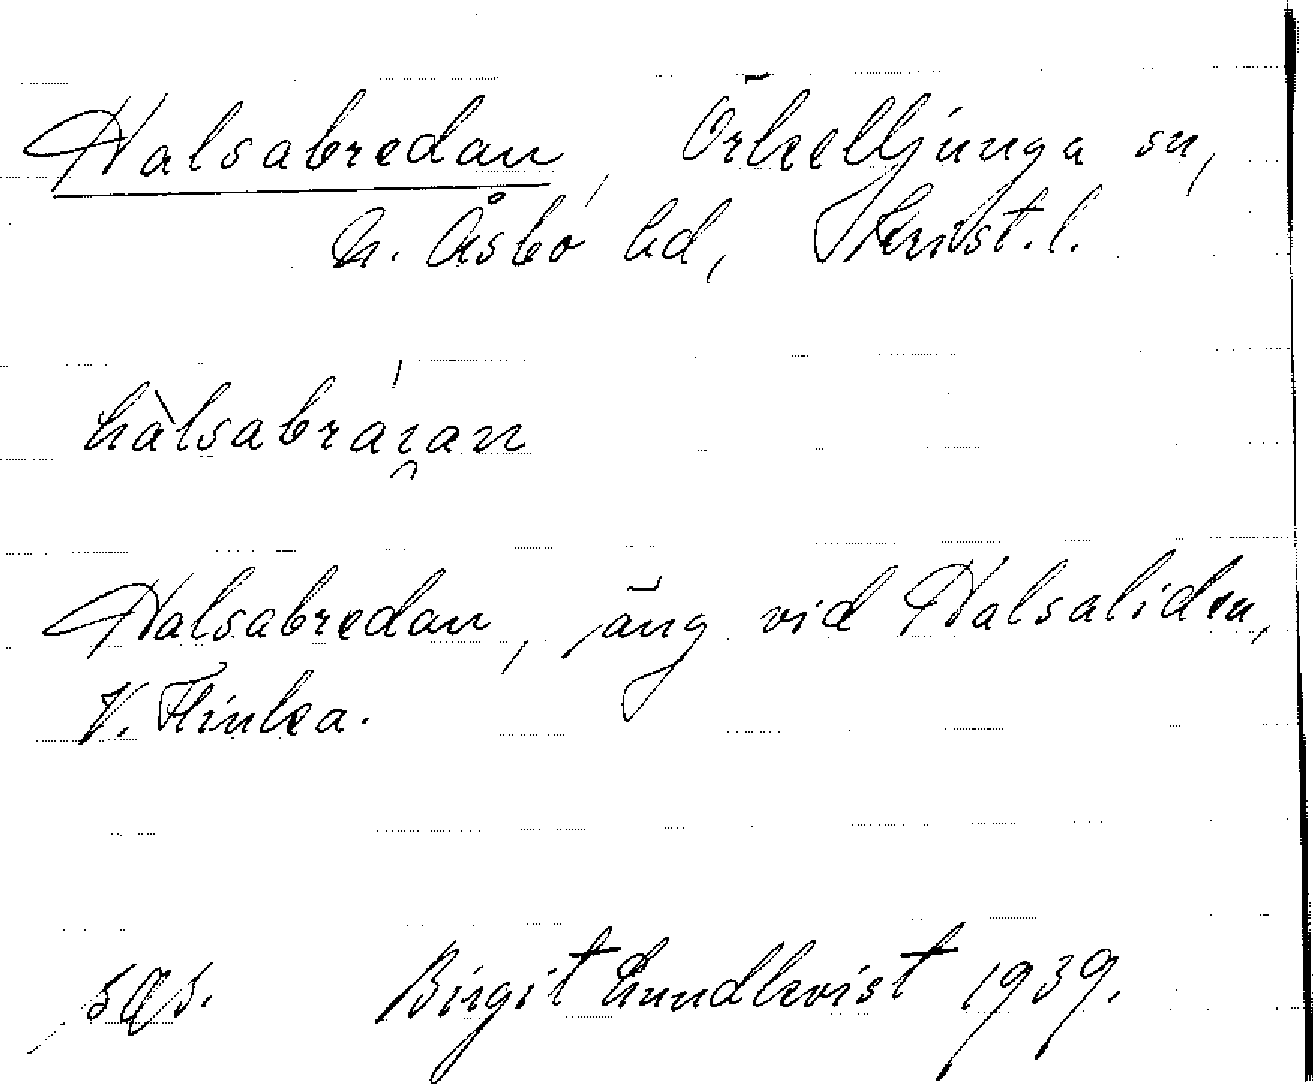 Halsabredan, Örkelljunga sn,
N. Åsbo hd, Krist. l.
hàlsabráɪ̯an
Halsabredan, äng vid Halsaliden,
V. Flinka.
Birgit Lundkvist 1939.